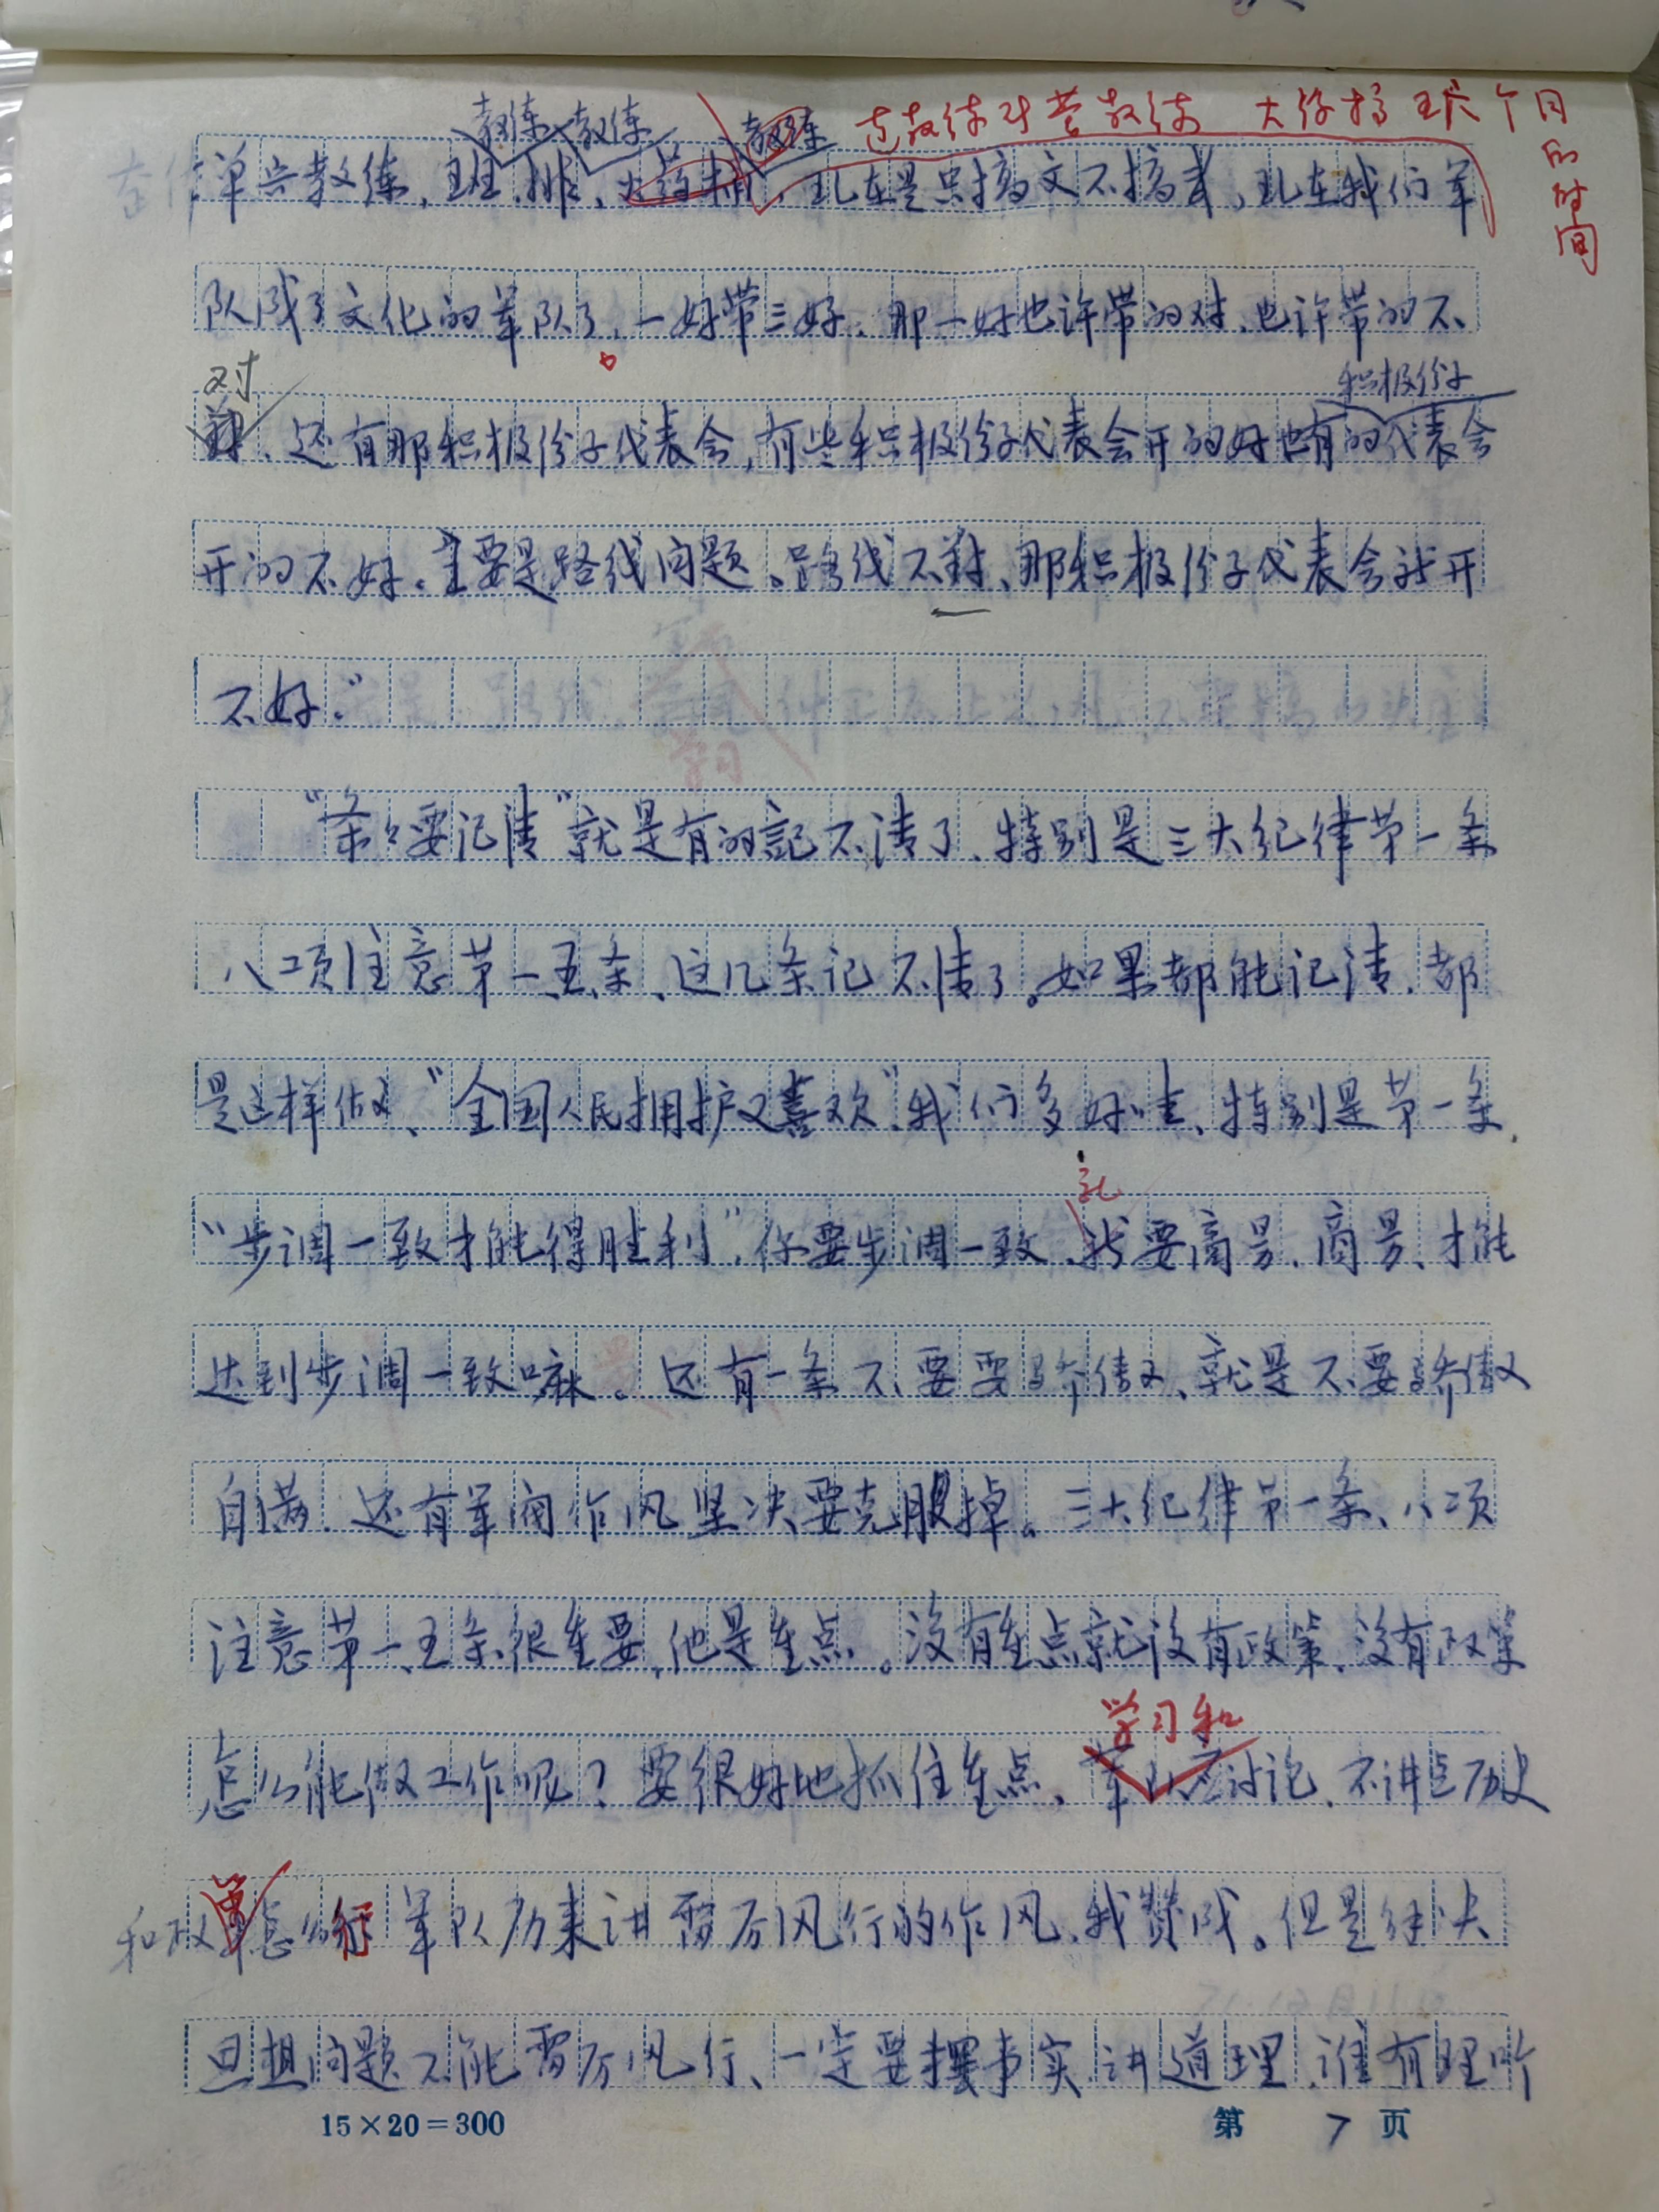 教练 教练 教练 连教练对营教练 大约搞五六个月的时间
在作单兵教练，班、排、现在是只搞文不搞武，现在我们军
队成了文化的军队了。一好带三好，那一好也许带的对、也许带的不
对
积极份子
、还有那积极份子代表会，有些积极份子代表会开的好也有的代表会
开的不好。主要是路线问题。路线不对、那积极份子代表会就开
不好。”
“条々要记清”就是有的記不清了、特别是三大纪律第一条
八项注意第一、五条、这几条记不清了。如果都能记清、都
是这样做、“全国人民拥护又喜欢”我们多好哇、特别是第一条、
“步调一致才能得胜利”，你要步调一致、我要商量、商量、才能
达到步调一致嘛。还有一条不要要骄傲、就是不要骄傲
自满、还有军阀作风坚决要克服掉。三大纪律第一条、八项
注意第一、五条很重要，他是重点。没有重点就没有政策、没有政策
学习和
怎么能做工作呢？要很好地抓住重点、讨论、不讲点历史
和政策怎么行 军队历来讲雷厉风行的作风、我赞成。但是解决
思想问题不能雷厉风行、一定要摆事实、讲道理、谁有理听
15×20=300 第 7 页